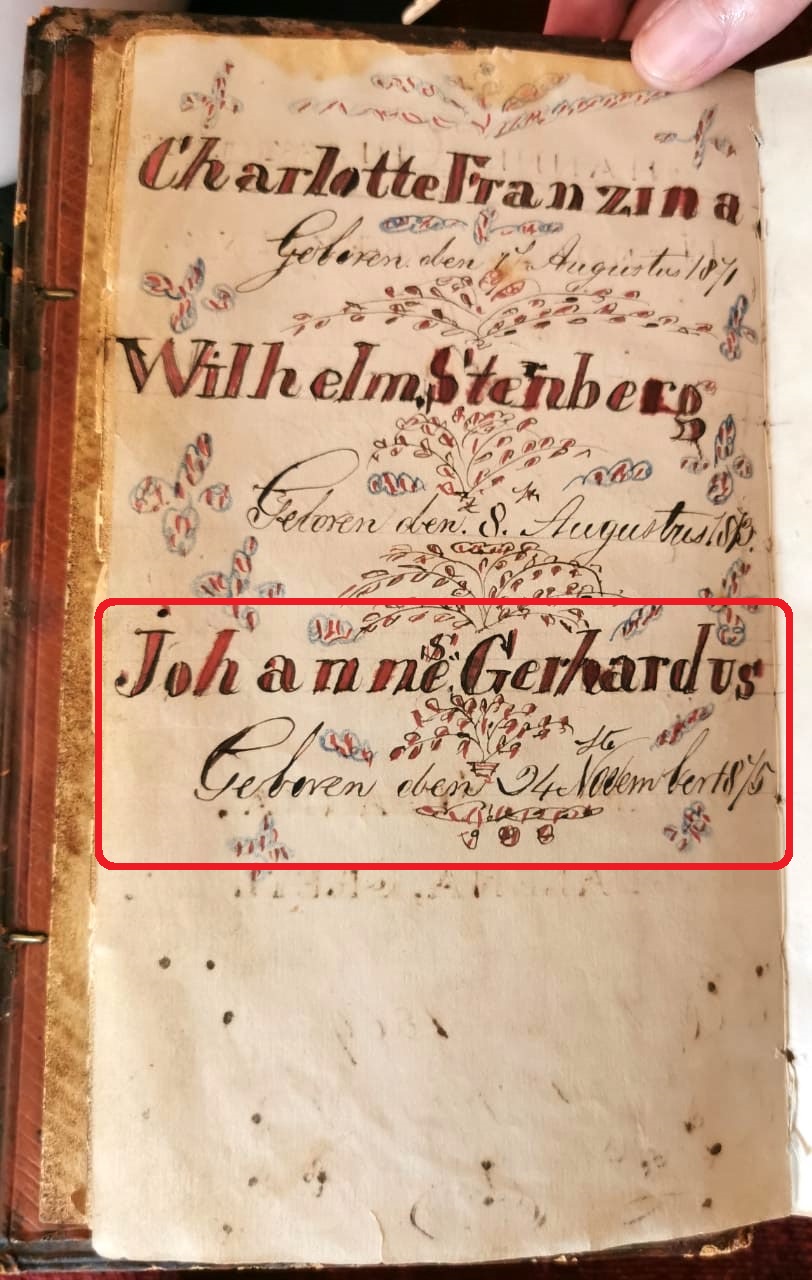 Charlotte Franzina
Geboren den 7de Augustus 1871
Wilhelm Stenberg
Geboren den 8ste Augustus 1873.
Johannes Gerhardus
Geboren den 24ste November 1875